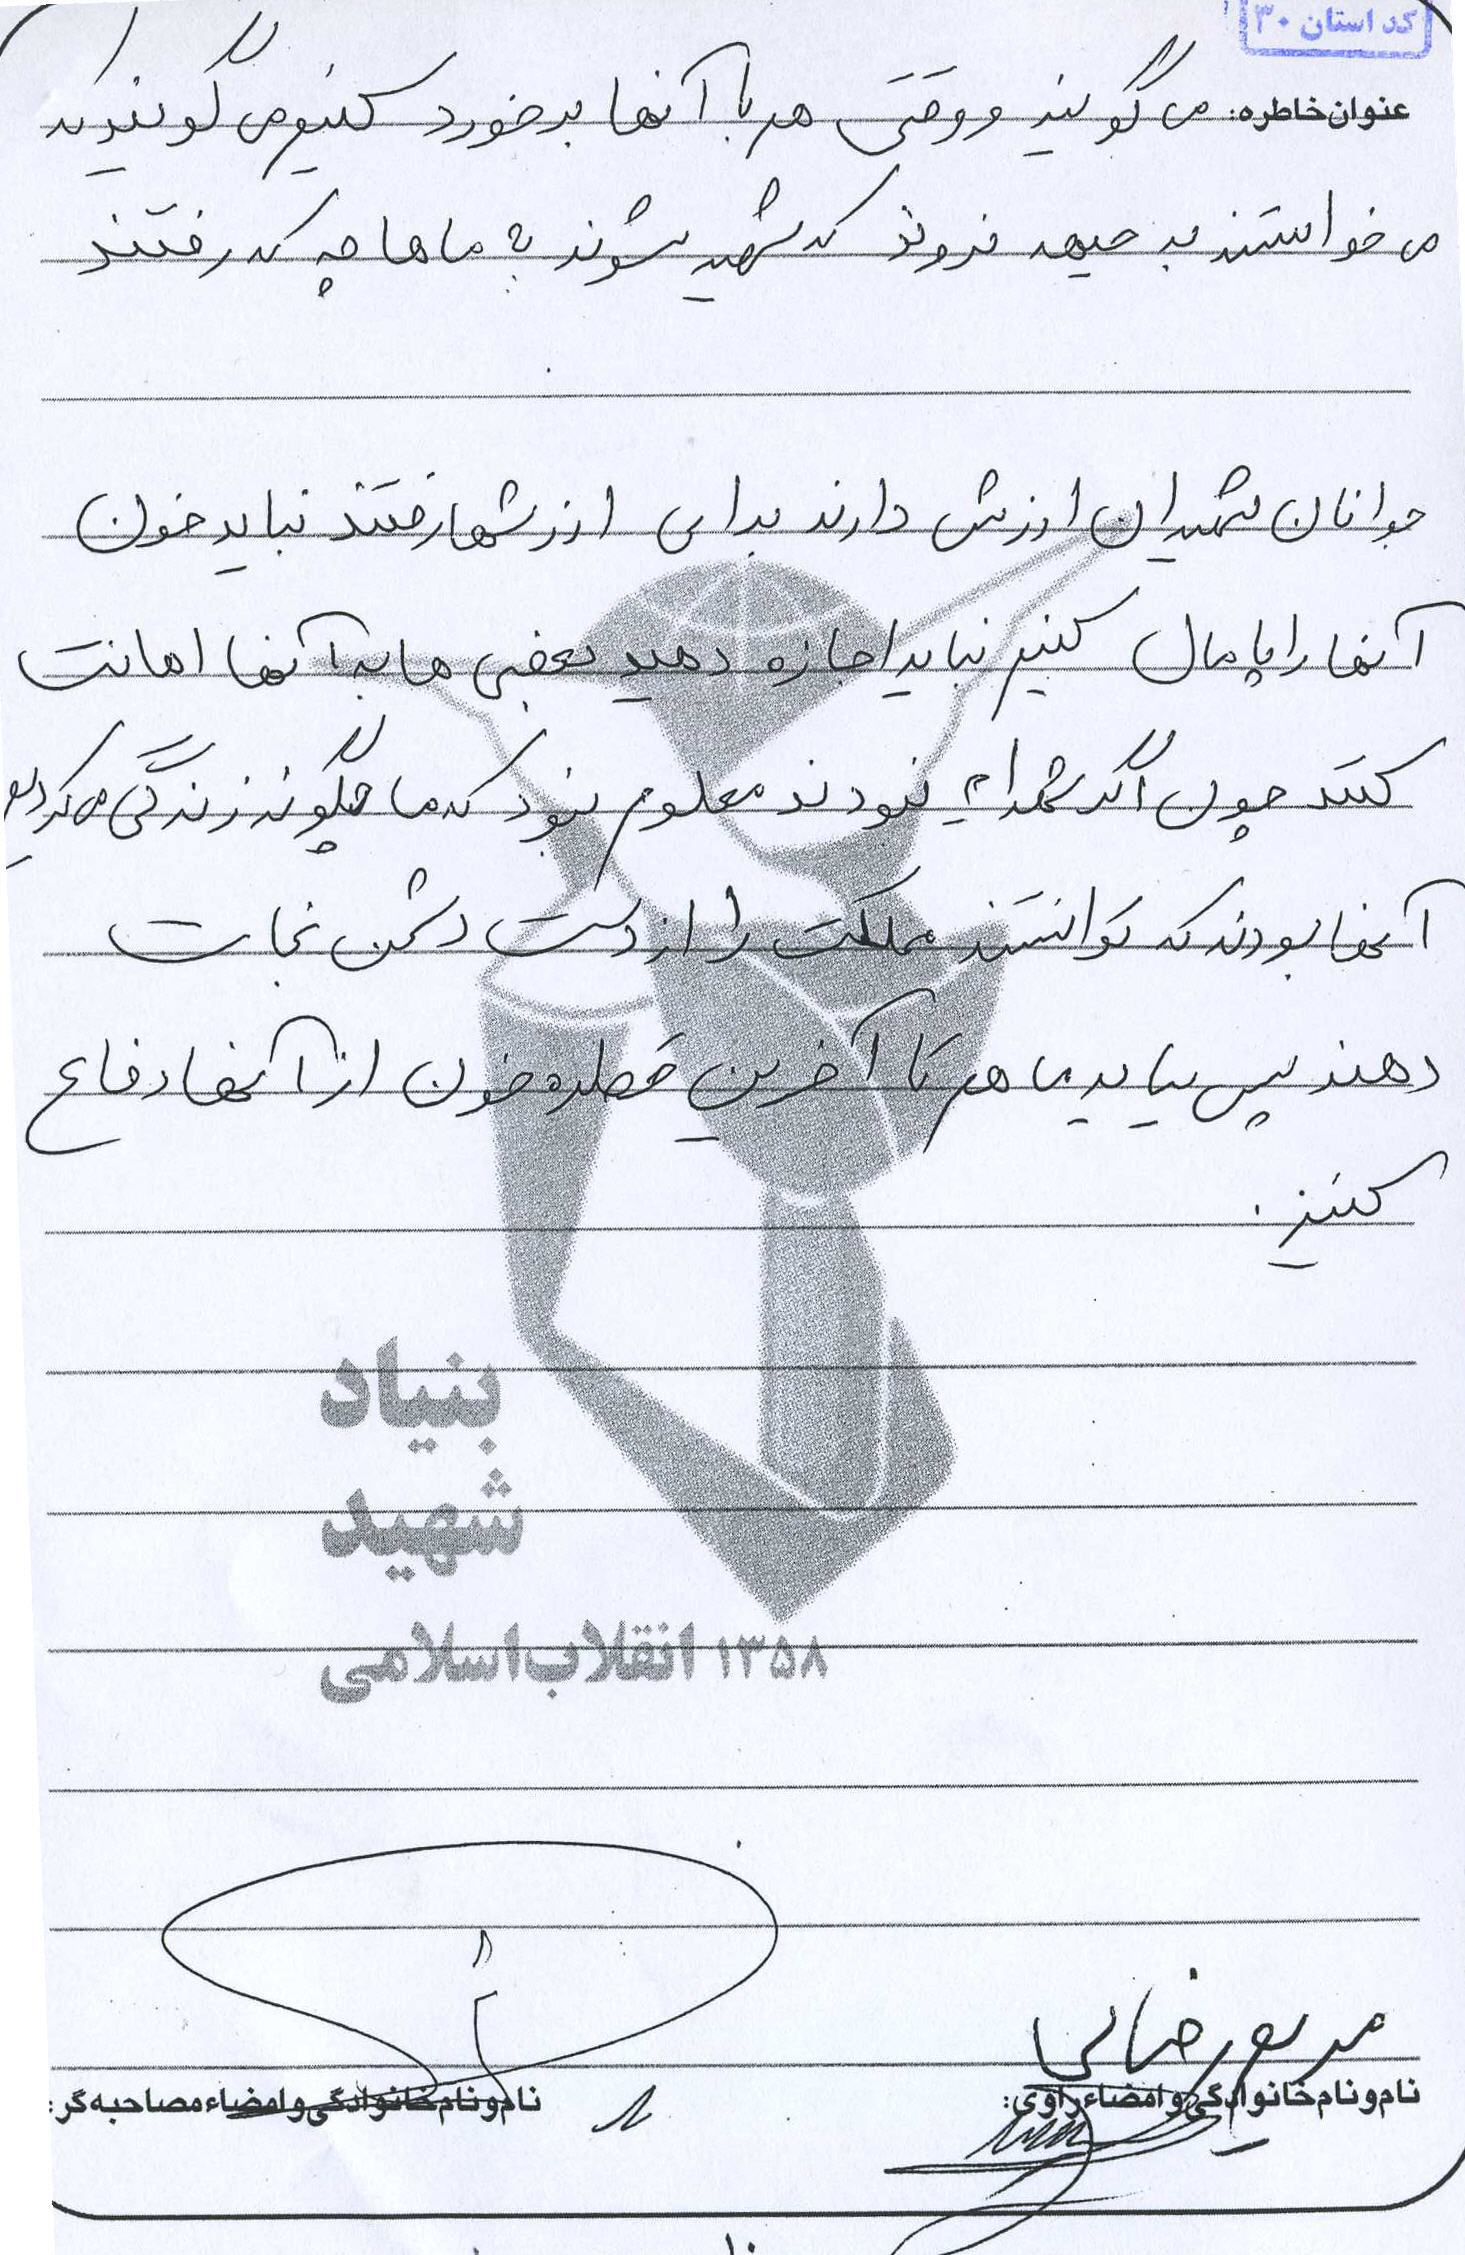 کد استان ۳۰
عنوان خاطره: می گویند و وقتی هم با آنها برخورد کنیم می گویند
می خواستند به جبهه نروند که شهید بشوند به ماها چه که رفتند
جوانان شهیدان ارزش دارند برای ارزشها رفتند نباید خون
آنها را پامال کنیم نباید اجازه دهید بعضی ها به آنها اهانت
کنند چون اگر شهدا نبودند معلوم نبود که ما چگونه زندگی می کردیم
آنها بودند که توانستند مملکت را از دست دشمن نجات
دهند پس بیاید ما هم تا آخرین قطره خون از آنها دفاع
کنیم.
بنیاد
شهید
۱۳۵۸ انقلاب اسلامی
مریم رضائی
نام و نام خانوادگی و امضاء راوی:
نام و نام خانوادگی و امضاء مصاحبه گر:
۱۰